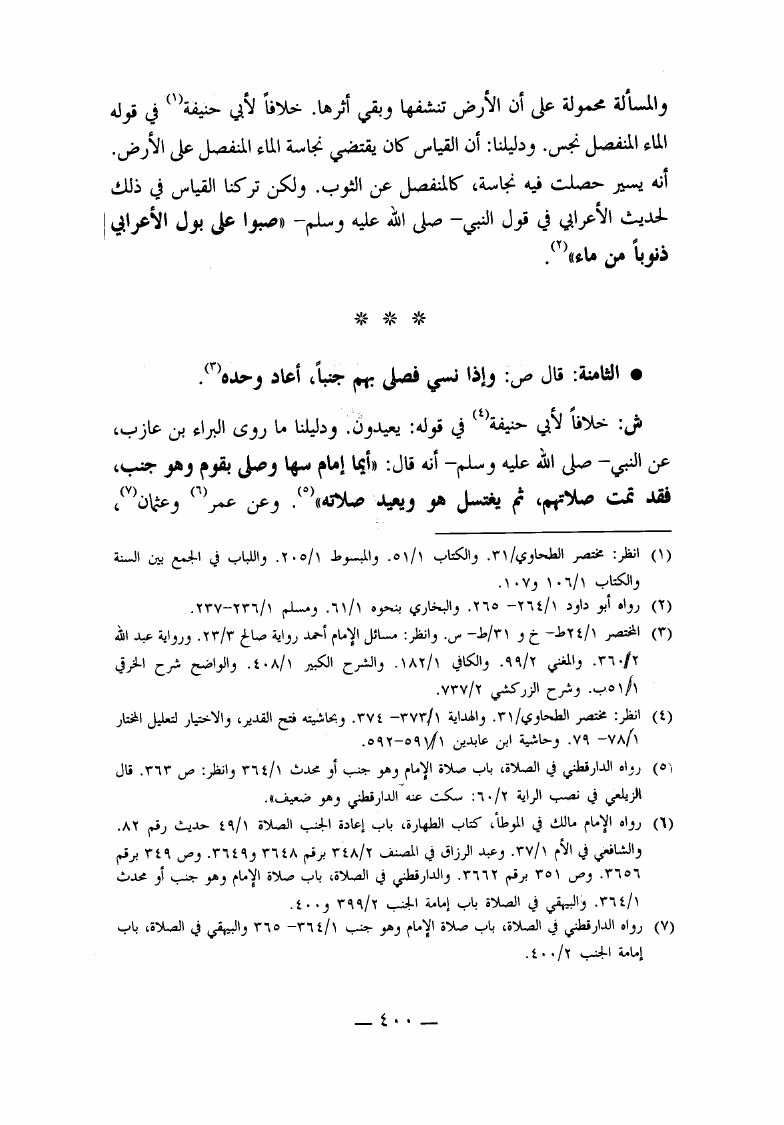 والمسألة محمولة على أن الأرض تنشفها وبقي أثرها. خلافاً لأبي حنيفة(١) في قوله
الماء المنفصل نجس. ودليلنا: أن القياس كان يقتضي نجاسة الماء المنفصل على الأرض.
أنه يسير حصلت فيه نجاسة، كالمنفصل عن الثوب. ولكن تركنا القياس في ذلك
لحديث الأعرابي في قول النبي- صلى الله عليه وسلم- «صبوا على بول الأعرابي
ذنوباً من ماء»(٢).
* * *
● الثامنة: قال ص: وإذا نسي فصلى بهم جنباً، أعاد وحده(٣).
ش: خلافاً لأبي حنيفة(٤) في قوله: يعيدون. ودليلنا ما روى البراء بن عازب،
عن النبي- صلى الله عليه وسلم- أنه قال: «أيما إمام سها وصلى بقوم وهو جنب،
فقد تمت صلاتهم، ثم يغتسل هو ويعيد صلاته»(٥). وعن عمر(٦) وعثمان(٧)،
(١) انظر: مختصر الطحاوي/٣١. والكتاب ٥١/١. والمبسوط ٢٠٥/١. واللباب في الجمع بين السنة
والكتاب ١٠٦/١ و١٠٧.
(٢) رواه أبو داود ٢٦٤/١- ٢٦٥. والبخاري بنحوه ٦١/١. ومسلم ٢٣٦/١-٢٣٧.
(٣) المختصر ٢٤/١ط- خ و ٣١/ط- س. وانظر: مسائل الإمام أحمد رواية صالح ٢٣/٣. ورواية عبد الله
٣٦٠/٢. والمغني ٩٩/٢. والكافي ١٨٢/١. والشرح الكبير ٤٠٨/١. والواضح شرح الخرقي
٥١/١ب. وشرح الزركشي ٧٣٧/٢.
(٤) انظر: مختصر الطحاوي/٣١. والهداية ٣٧٣/١- ٣٧٤. وبحاشيته فتح القدير، والاختيار لتعليل المختار
٧٨/١- ٧٩. وحاشية ابن عابدين ٥٩١/١-٥٩٢.
(٥) رواه الدارقطني في الصلاة، باب صلاة الإمام وهو جنب أو محدث ٣٦٤/١ وانظر: ص ٣٦٣. قال
الزيلعي في نصب الراية ٦٠/٢: سكت عنه الدارقطني وهو ضعيف».
(٦) رواه الإمام مالك في الموطأ، كتاب الطهارة، باب إعادة الجنب الصلاة ٤٩/١ حديث رقم ٨٢.
والشافعي في الأم ٣٧/١. وعبد الرزاق في المصنف ٣٤٨/٢ برقم ٣٦٤٨ و٣٦٤٩. وص ٣٤٩ برقم
٣٦٥٦. وص ٣٥١ برقم ٣٦٦٢. والدارقطني في الصلاة، باب صلاة الإمام وهو جنب أو محدث
٣٦٤/١. والبيهقي في الصلاة باب إمامة الجنب ٣٩٩/٢ و٤٠٠.
(٧) رواه الدارقطني في الصلاة، باب صلاة الإمام وهو جنب ٣٦٤/١- ٣٦٥ والبيهقي في الصلاة، باب
إمامة الجنب ٤٠٠/٢.
— ٤٠٠ —